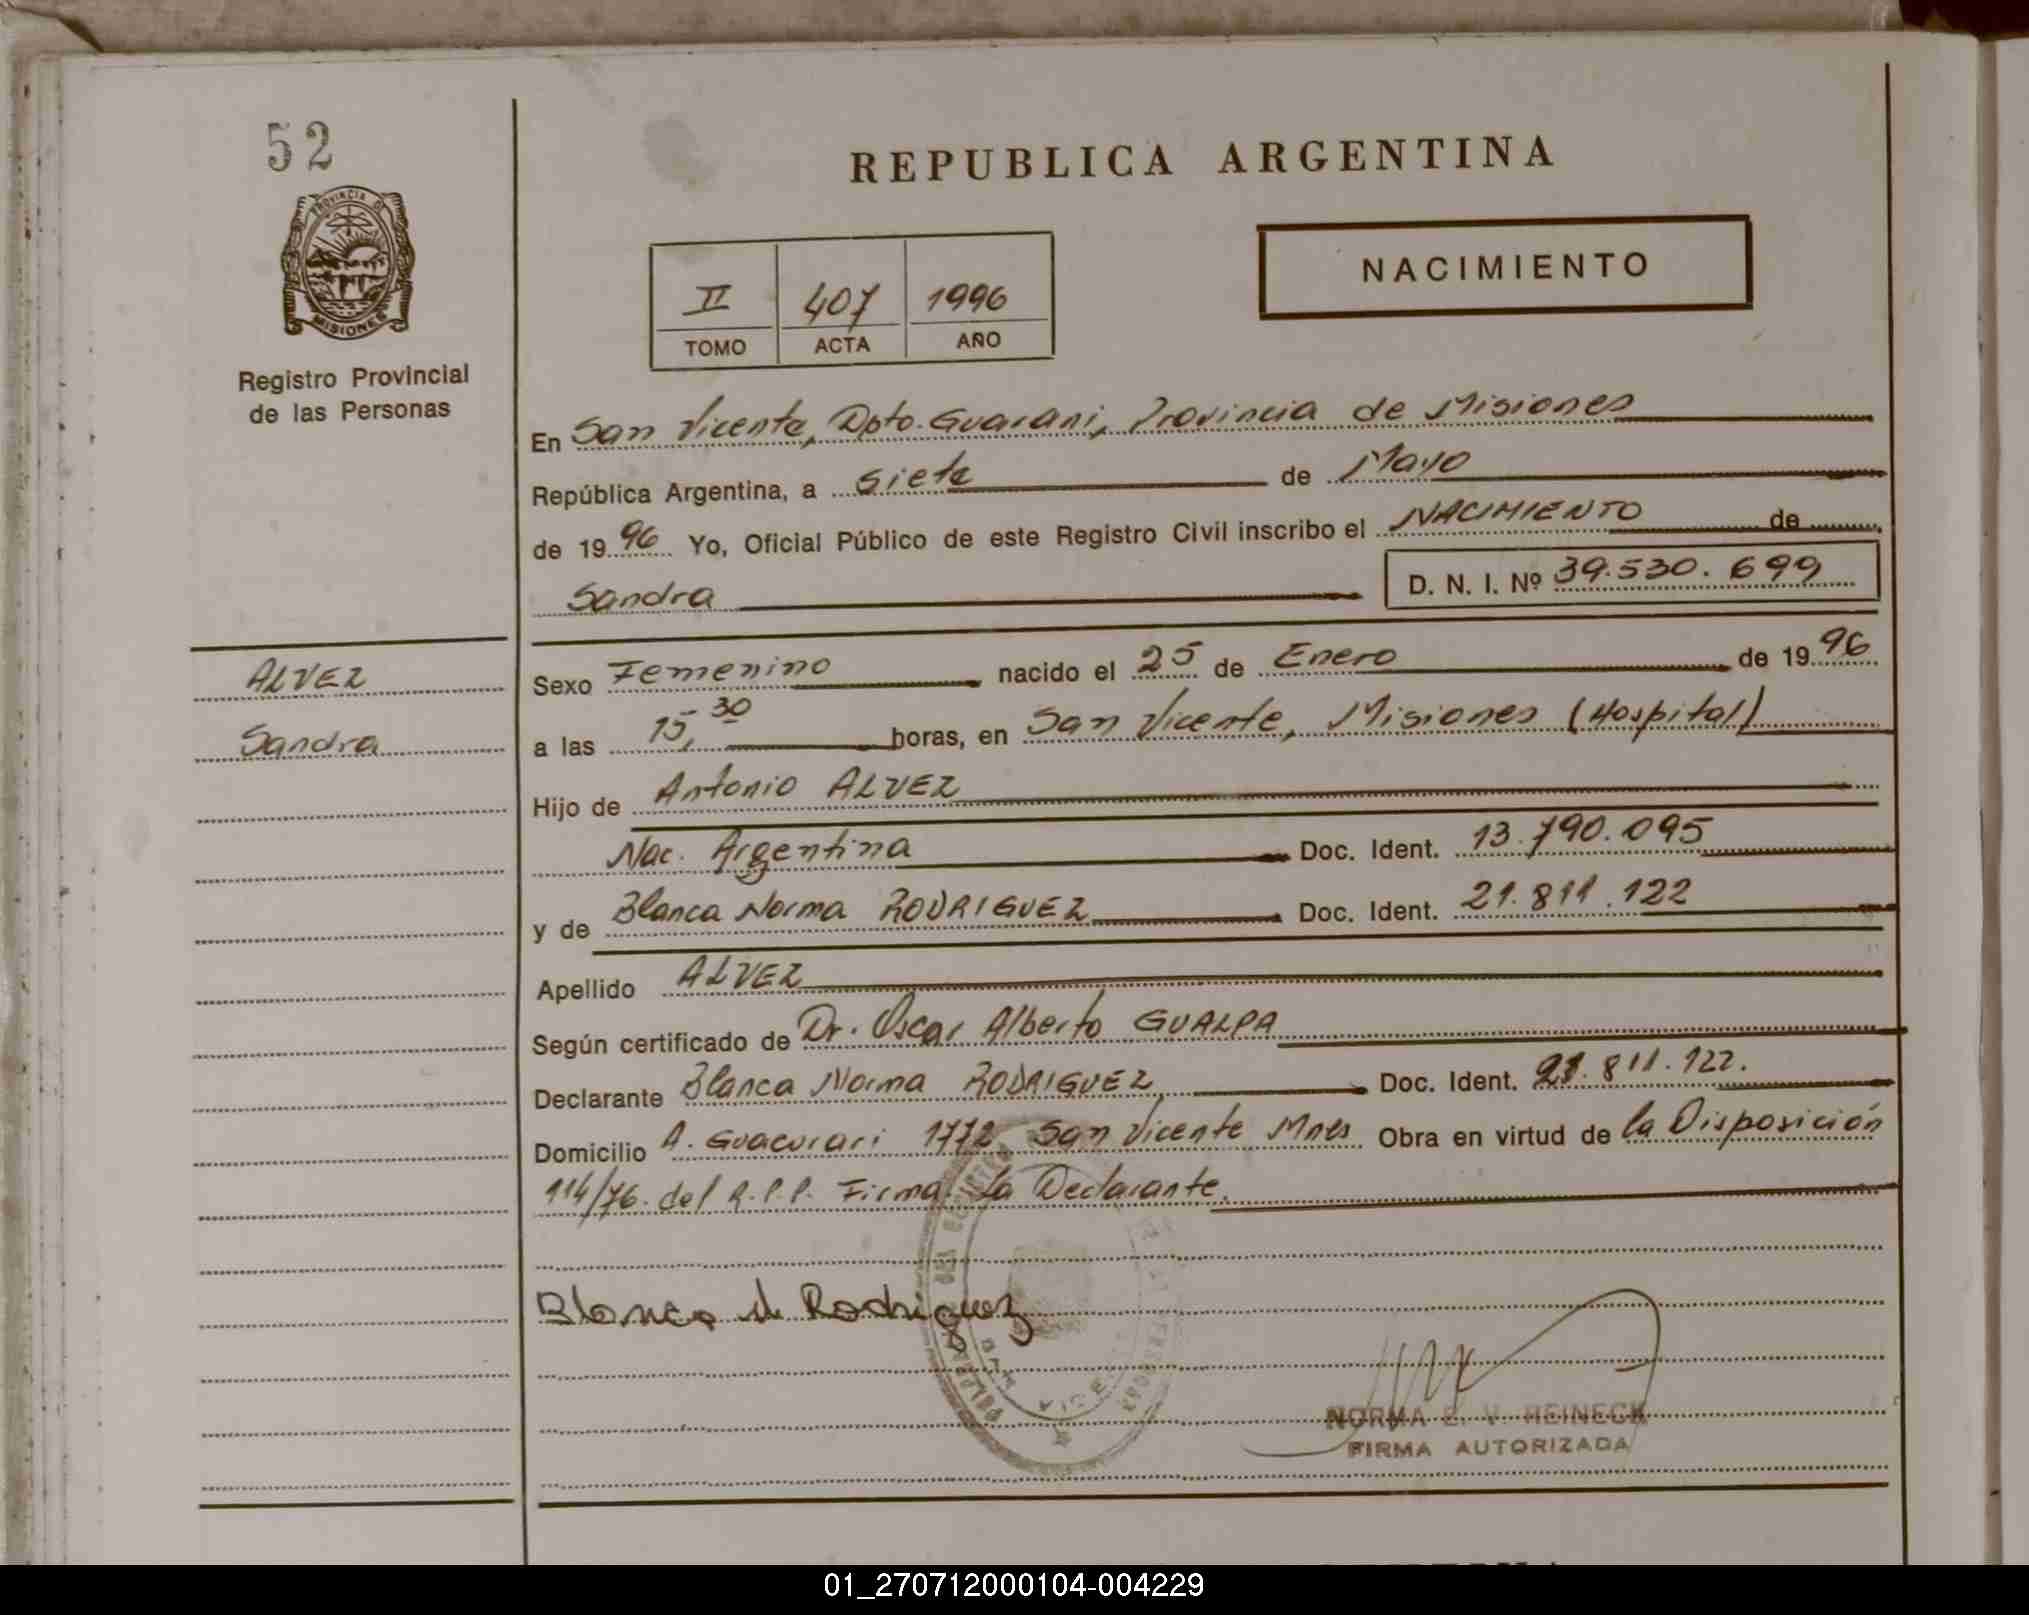 52
PROVINCIA DE
MISIONES
Registro Provincial
de las Personas
REPUBLICA ARGENTINA
II 407 1996
TOMO ACTA AÑO
NACIMIENTO
En San Vicente, Dpto. Guarani, Provincia de Misiones
República Argentina, a siete de Mayo
de 1996 Yo, Oficial Público de este Registro Civil inscribo el NACIMIENTO de
Sandra D. N. I. Nº 39.530.699
ALVEZ
Sandra
Sexo Femenino nacido el 25 de Enero de 1996
a las 15,30 horas, en San Vicente, Misiones (Hospital)
Hijo de Antonio ALVEZ
Nac. Argentina Doc. Ident. 13.790.095
y de Blanca Norma RODRIGUEZ Doc. Ident. 21.811.122
Apellido ALVEZ
Según certificado de Dr. Oscar Alberto GUALPA
Declarante Blanca Norma RODRIGUEZ Doc. Ident. 21.811.122.
Domicilio A. Guacurari 1772 San Vicente Mnes Obra en virtud de la Disposición
114/76. del R.P.P. Firma: La Declarante.
Blanca N. Rodriguez
NORMA E. V. REINECK
FIRMA AUTORIZADA
01_270712000104-004229